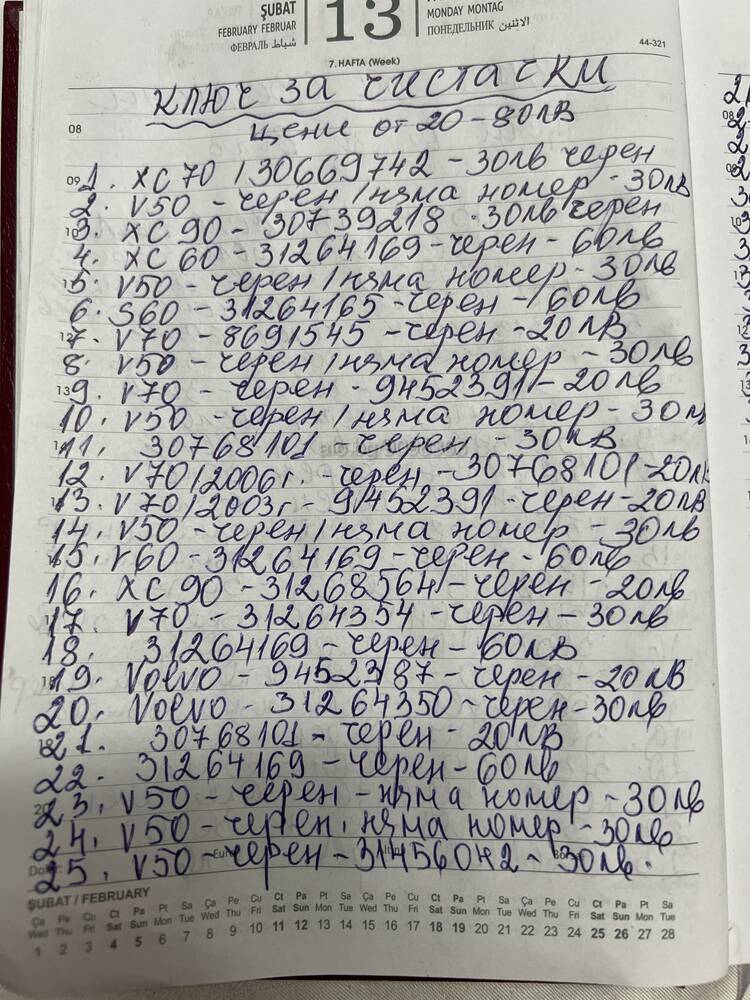 ŞUBAT
FEBRUARY FEBRUAR
ФЕВРАЛЬ شباط
13
MONDAY MONTAG
ПОНЕДЕЛЬНИК الاثنين
44-321
7. HAFTA (Week)
КЛЮЧ ЗА ЧИСТАЧКИ
08 цени от 20-80лв
1. XC70 / 30669742 - 30лв черен
2. V50 - черен / няма номер - 30лв
3. XC90 - 30739218 - 30лв черен
4. XC60 - 31264169 - черен - 60лв
5. V50 - черен / няма номер - 30лв
6. S60 - 31264165 - черен - 60лв
7. V70 - 8691545 - черен - 20лв
8. V50 - черен / няма номер - 30лв
9. V70 - черен - 9452391 - 20лв
10. V50 - черен / няма номер - 30лв
11. 30768101 - черен - 30лв
12. V70 / 2006г. - черен - 30768101 - 20лв
13. V70 / 2003г - 9452391 - черен - 20лв
14. V50 - черен / няма номер - 30лв
15. V60 - 31264169 - черен - 60лв
16. XC90 - 31268564 - черен - 20лв
17. V70 - 31264354 - черен - 30лв
18. 31264169 - черен - 60лв
19. Volvo - 9452387 - черен - 20лв
20. Volvo - 31264350 - черен - 30лв
21. 30768101 - черен - 20лв
22. 31264169 - черен - 60лв
23. V50 - черен - няма номер - 30лв
24. V50 - черен, няма номер - 30лв
25. V50 - черен - 31456042 - 30лв.
ŞUBAT / FEBRUARY
Ça Pe Cu Ct Pa Pt Sa Ça Pe Cu Ct Pa Pt Sa Ça Pe Cu Ct Pa Pt Sa Ça Pe Cu Ct Pa Pt Sa
Wed Thu Fri Sat Sun Mon Tue Wed Thu Fri Sat Sun Mon Tue Wed Thu Fri Sat Sun Mon Tue Wed Thu Fri Sat Sun Mon Tue
1 2 3 4 5 6 7 8 9 10 11 12 13 14 15 16 17 18 19 20 21 22 23 24 25 26 27 28